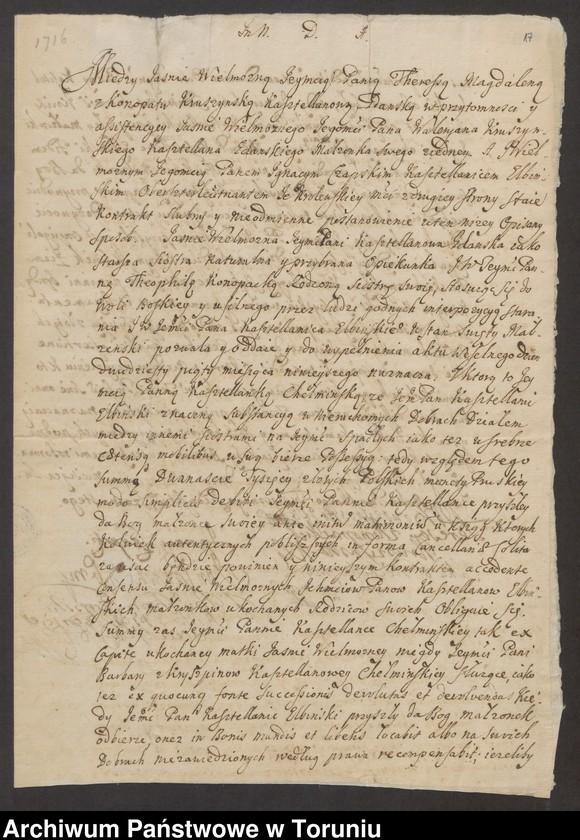 1716
17
In N. D. A.
Między Jasnie Wielmozną Jeymcią Panią Theressą Magdaleną
z Konopatu Kruszynską Kasztellanową Gdanską w przytomnosci y
assistencyey Jasnie Wielmoznego Jegomsci Pana Waleryana Kruszyn-
skiego Kasztellana Gdanskiego Małzonka swego z iedney. A J Wiel
moznym Jegomcią Panem Ignacym Czapskim Kasztellanicem Elbin-
skim Oberszterleitnantem Je Krolewskiey Mci z drugiey strony Staie
Kontrakt slubny y nieodmienne postanowienie w ten nizey Opisany
sposob. Jasnie Wielmozna JeymPani Kasztellanowa Gdanska iako
starsza Siostra naturalna y przybrana Opiekunka J W Jeymsci Pan-
nę Theophilę Konopacką Rodzoną Siostrę Swoię, stosuiąc się do
Woli Boskiey y usilnego przez ludzi godnych interpozycyą stara-
nia J W Jemsci Pana Kasztellanica Elbinskie w stan Swięty Mał
zenski pozwala y oddaie y do wypełnienia aktu Weselnego dzien
dwudziesty piąty miesiąca ninieyszego naznacza. Ktorą to Jey
mcią Pannę Kasztellankę Chełminską ze JemPan Kasztellanic
Elbinski z znaczną Substancyą w nieruchomych Dobrach Działem
miedzy innemi siostrami na Jeymc spadłych iako tez w srebrze
mobilibus w swą bierze Possessyą: tedy względem tego
summę Dwanascie Tysięcy złotych Polskich monety Pruskiey
modo simplicis debiti Jeymsci Pannie Kasztellance przyszłey
da Bog małzonce Swoiey ante initum matrimonium w Xięgach ktorych
kolwiek autentycznych publicznych in forma Cancellariae solita
zapisac będzie powinien y ninieyszym kontraktem accedente
consensu Jasnie Wielmoznych Jchmciow Panow Kasztellanow Elbin-
skich małzonkow ukochanych Rodzicow swoich Obliguie się.
Summy zas Jeymsci Pannie Kasztellance Chełminskiey tak ex
Capite ukochaney matki Jasnie Wielmozney niegdy Jeymsci Pani
Barbary z Kryszpinow Kasztellanowey Chełminskiey słuzące iako
tez ex quocunq fonte successionis devolutas et devolvendas kie-
dy Jemsci Pan Kasztellanic Elbinski przyszły da Bog małzonek
odbierze, onez in Bonis mundis et liberis locabit albo na swoich
Dobrach niezawiedzionych według prawa recompensabit; iezeliby
Archiwum Państwowe w Toruniu